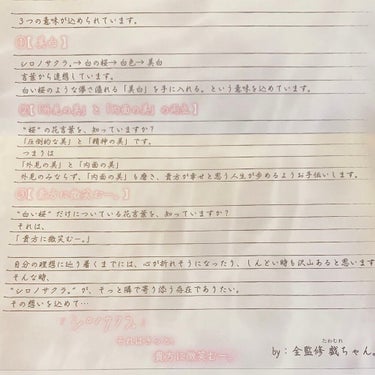 3つの意味が込められています。
①【美白】
シロノサクラ。→白の桜→白色→美白
言葉から連想しています。
白い桜のような儚で溢れる「美白」を手に入れる。という意味を込めています。
②【「外見の美」と「内面の美」の両立】
"桜"の花言葉を、知っていますか?
「圧倒的な美」と「精神の美」です。
つまりは
「外見の美」と「内面の美」
外見のみならず、「内面の美」も磨き、貴方が幸せと思う人生が歩めるようお手伝いします。
③【貴方に微笑むー。】
"白い桜"だけについている花言葉を、知っていますか?
それは、
「貴方に微笑むー。」
自分の理想に辿り着くまでには、心が折れそうになったり、しんどい時も沢山あると思います
そんな時、
"シロノサクラ。"が、そっと隣で寄り添う存在でありたい。
その想いを込めて…
シロノサクラ。
それはきっと、
貴方に微笑むー。
by:全監修 戯ちゃん。
たわむれ